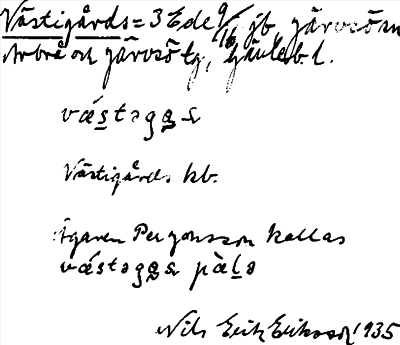 Västigårds = 3 Ede 9/16, jb, Järvsö sn
Arbrå och Järvsö tg, Gävleb. l.
västəgas
Västigårds kb.
Ägaren Per Jonsson kallas
västəgas pàlə
Nils Erik Eriksson 1935